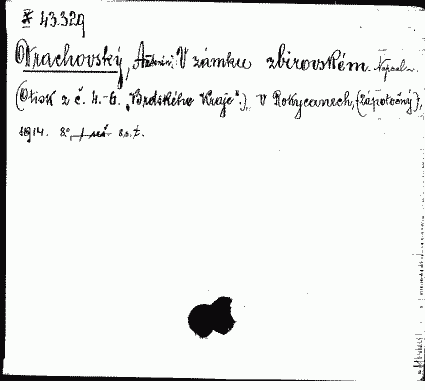 43.329
Vrachovský, Antonín: V zámku zbirovském. Napsal
(Otisk z č. 4.-6. „Brdského Kraje“.) V Rokycanech, (Zápotočný),
1914. 8°, s. t.